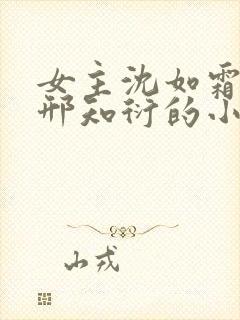 女主沈如霜
邢知衍的小
山戎